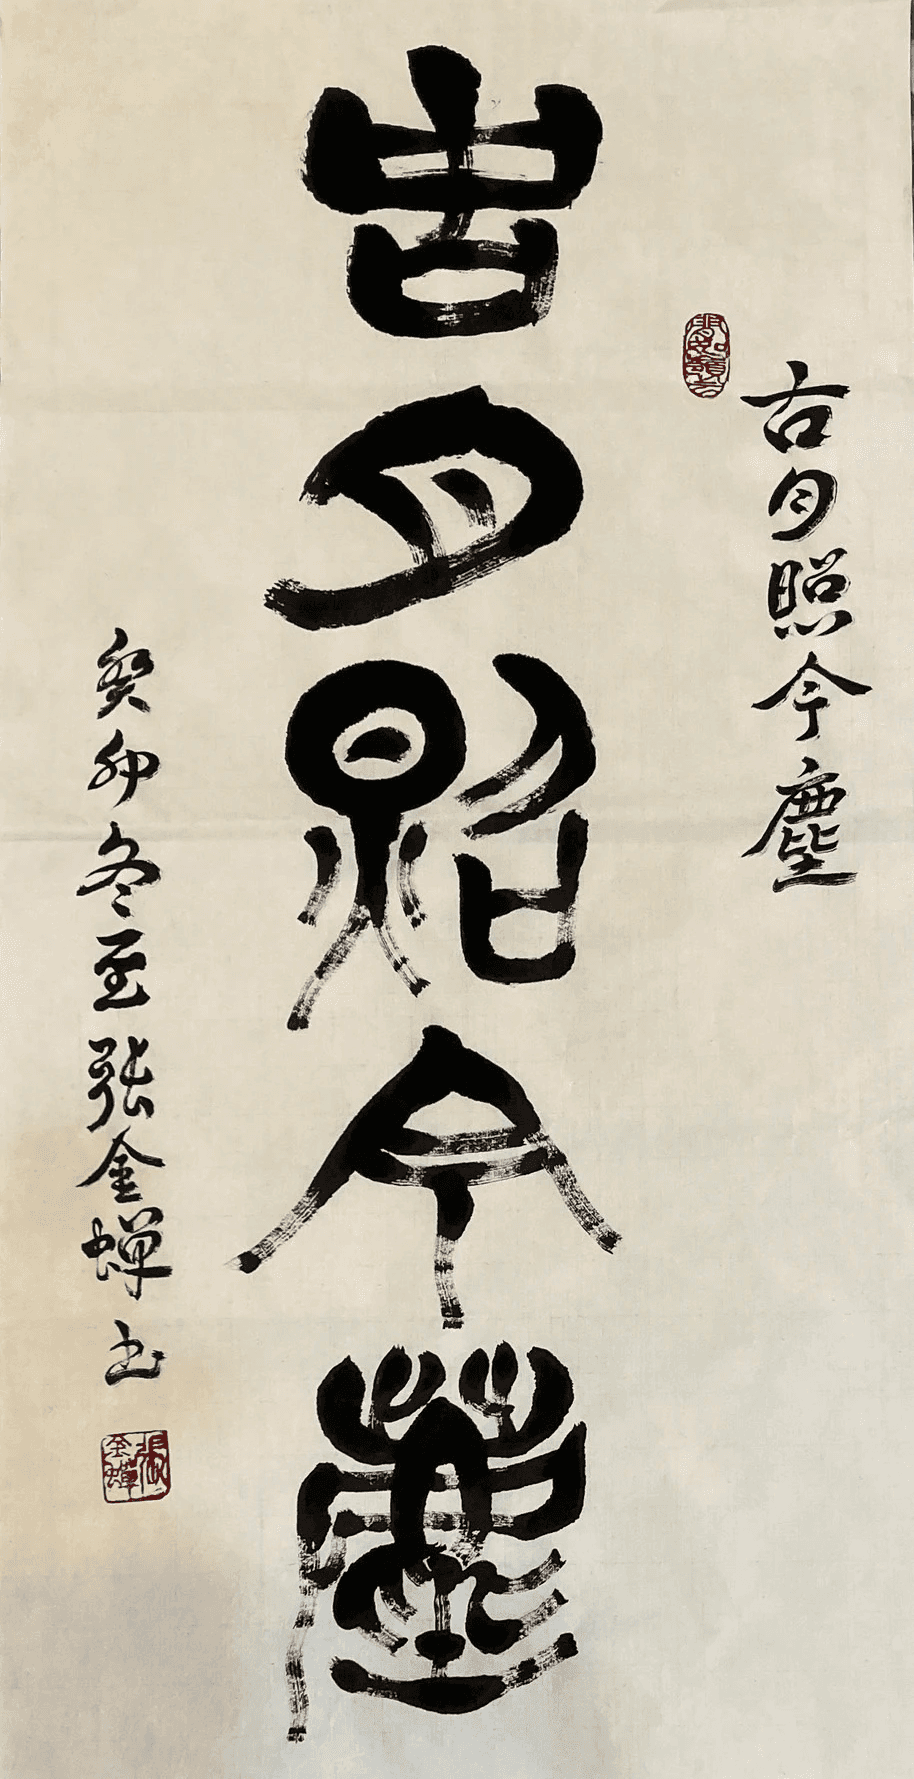 古月照今塵
古月照今塵
癸卯冬至张金蝉书
張金蟬